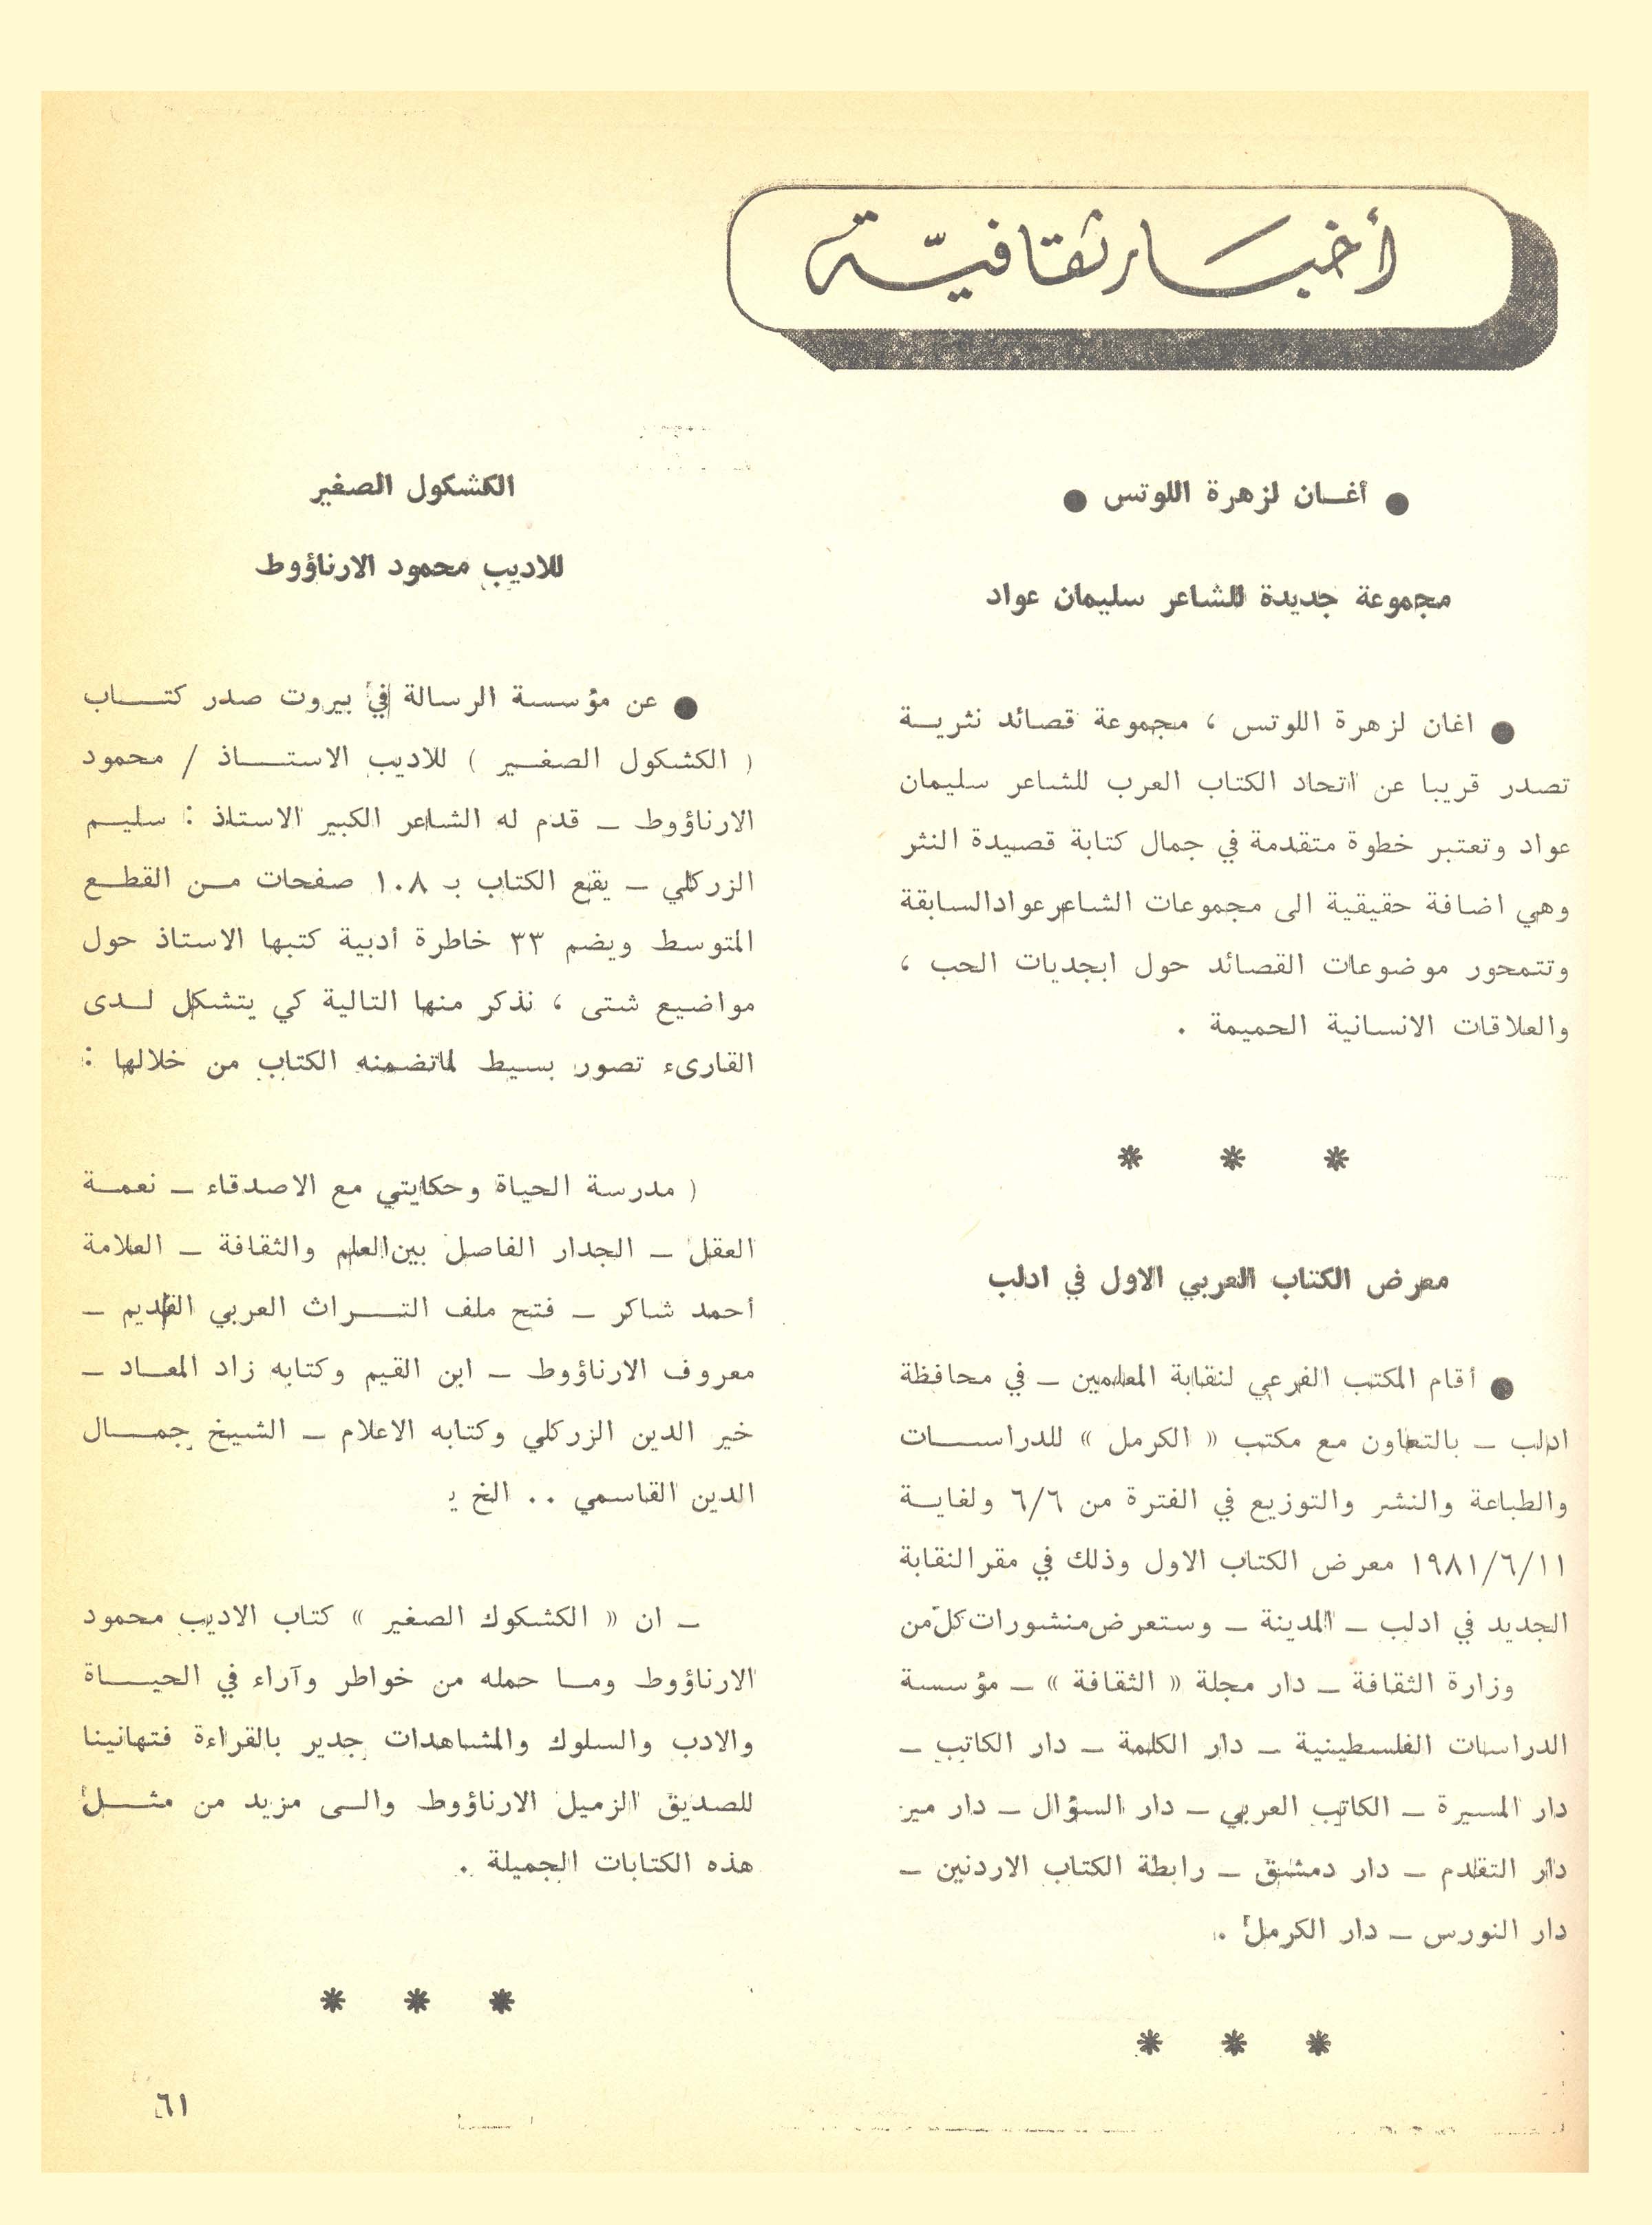 أخبار ثقافيّة
● أغـان لزهرة اللوتس ●
مجموعة جديدة للشاعر سليمان عواد
● اغان لزهرة اللوتس ، مجموعة قصائد نثريـة
تصدر قريبا عن اتحاد الكتاب العرب للشاعر سليمان
عواد وتعتبر خطوة متقدمة في جمال كتابة قصيدة النثر
وهي اضافة حقيقية الى مجموعات الشاعر عواد السابقة
وتتمحور موضوعات القصائد حول ابجديات الحب ،
والعلاقات الانسانية الحميمة .
* * *
معرض الكتاب العربي الاول في ادلب
● أقام المكتب الفرعي لنقابة المعلمين ــ في محافظة
ادلب ــ بالتعاون مع مكتب « الكرمل » للدراسـات
والطباعة والنشر والتوزيع في الفترة من ٦/٦ ولغايـة
١٩٨١/٦/١١ معرض الكتاب الاول وذلك في مقر النقابة
الجديد في ادلب ــ المدينة ــ وستعرض منشورات كل من
وزارة الثقافة ــ دار مجلة « الثقافة » ــ مؤسسة
الدراسات الفلسطينية ــ دار الكلمة ــ دار الكاتب ــ
دار المسيرة ــ الكاتب العربي ــ دار السؤال ــ دار مير
دار التقدم ــ دار دمشق ــ رابطة الكتاب الاردنين ــ
دار النورس ــ دار الكرمل .
* * *
الكشكول الصغير
للاديب محمود الارناؤوط
● عن مؤسسة الرسالة في بيروت صدر كتـاب
( الكشكول الصغـير ) للاديب الاستـاذ / محمود
الارناؤوط ــ قدم له الشاعر الكبير الاستاذ : سليـم
الزركلي ــ يقع الكتاب بـ ١٠٨ صفحات مـن القطـع
المتوسط ويضم ٣٣ خاطرة أدبية كتبها الاستاذ حول
مواضيع شتى ، نذكر منها التالية كي يتشكل لـدى
القارىء تصور بسيط لماتضمنه الكتاب من خلالها :
( مدرسة الحياة وحكايتي مع الاصدقاء ــ نعمـة
العقل ــ الجدار الفاصل بين العلم والثقافة ــ العلامة
أحمد شاكر ــ فتح ملف التـراث العربي القديم ــ
معروف الارناؤوط ــ ابن القيم وكتابه زاد المعـاد ــ
خير الدين الزركلي وكتابه الاعلام ــ الشيخ جمـال
الدين القاسمي .. الخ
ــ ان « الكشكوك الصغير » كتاب الاديب محمود
الارناؤوط ومـا حمله من خواطر وآراء في الحيـاة
والادب والسلوك والمشاهدات جدير بالقراءة فتهانينا
للصديق الزميل الارناؤوط والـى مزيد من مثـل
هذه الكتابات الجميلة .
* * *
٦١